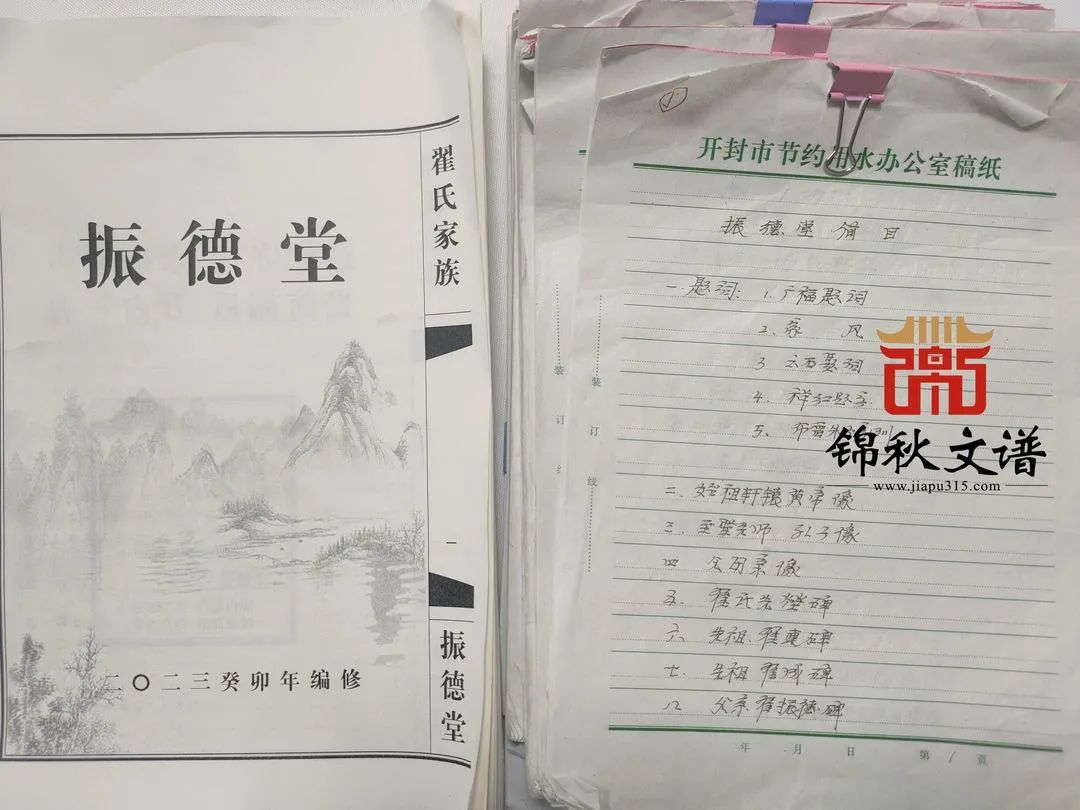 振德堂
二〇二三癸卯年编修
翟氏家族
一
振德堂
1.
开封市节约用水办公室稿纸
振德堂
目
一.题词:1.广福题词
2.家 风
3
题词
4.祥红题
5、
二、始祖轩辕黄帝像
三.至圣老师 孔子像
四 父母亲像
五.翟氏先茔碑
六 先祖翟
碑
七.先祖翟
碑
八 父亲翟振德碑
装
订
线
装
订
线
年 月 日 第1页
锦秋文谱
www.jiapu315.com